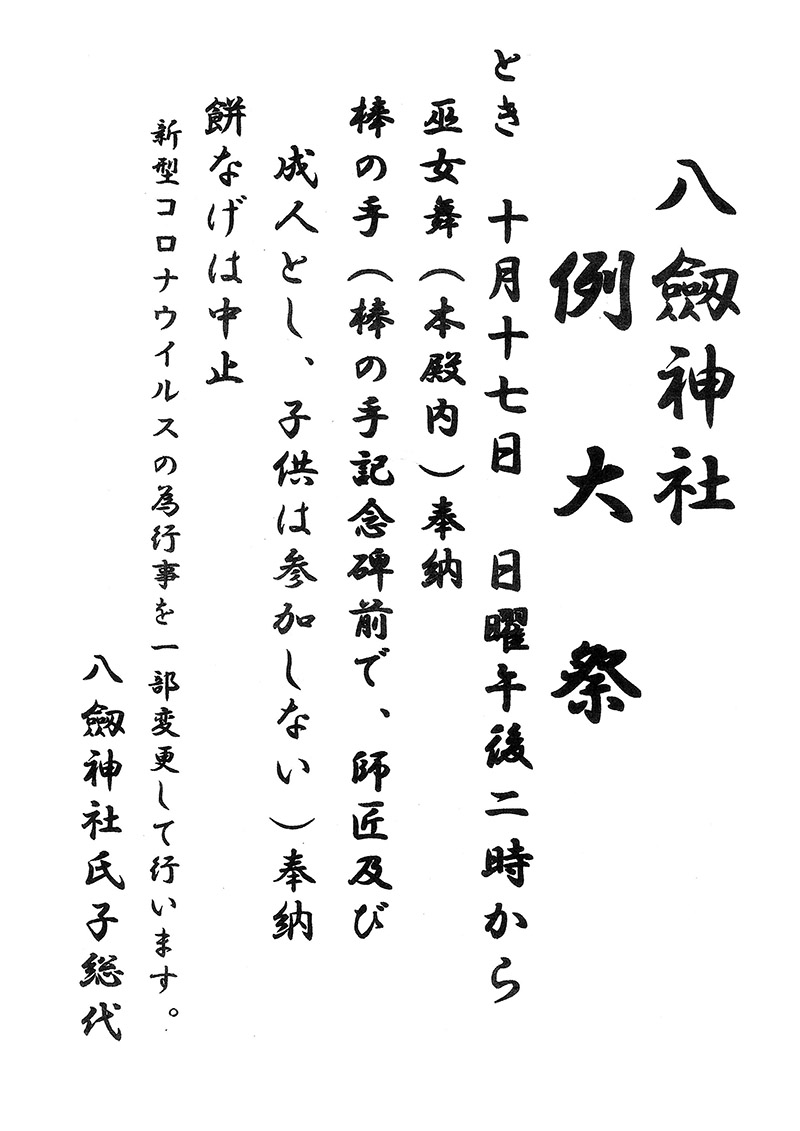 八劔神社
例大祭
とき 十月十七日 日曜午後二時から
巫女舞（本殿内）奉納
棒の手（棒の手記念碑前で、師匠及び
成人とし、子供は参加しない）奉納
餅なげは中止
新型コロナウイルスの為行事を一部変更して行います。
八劔神社氏子総代